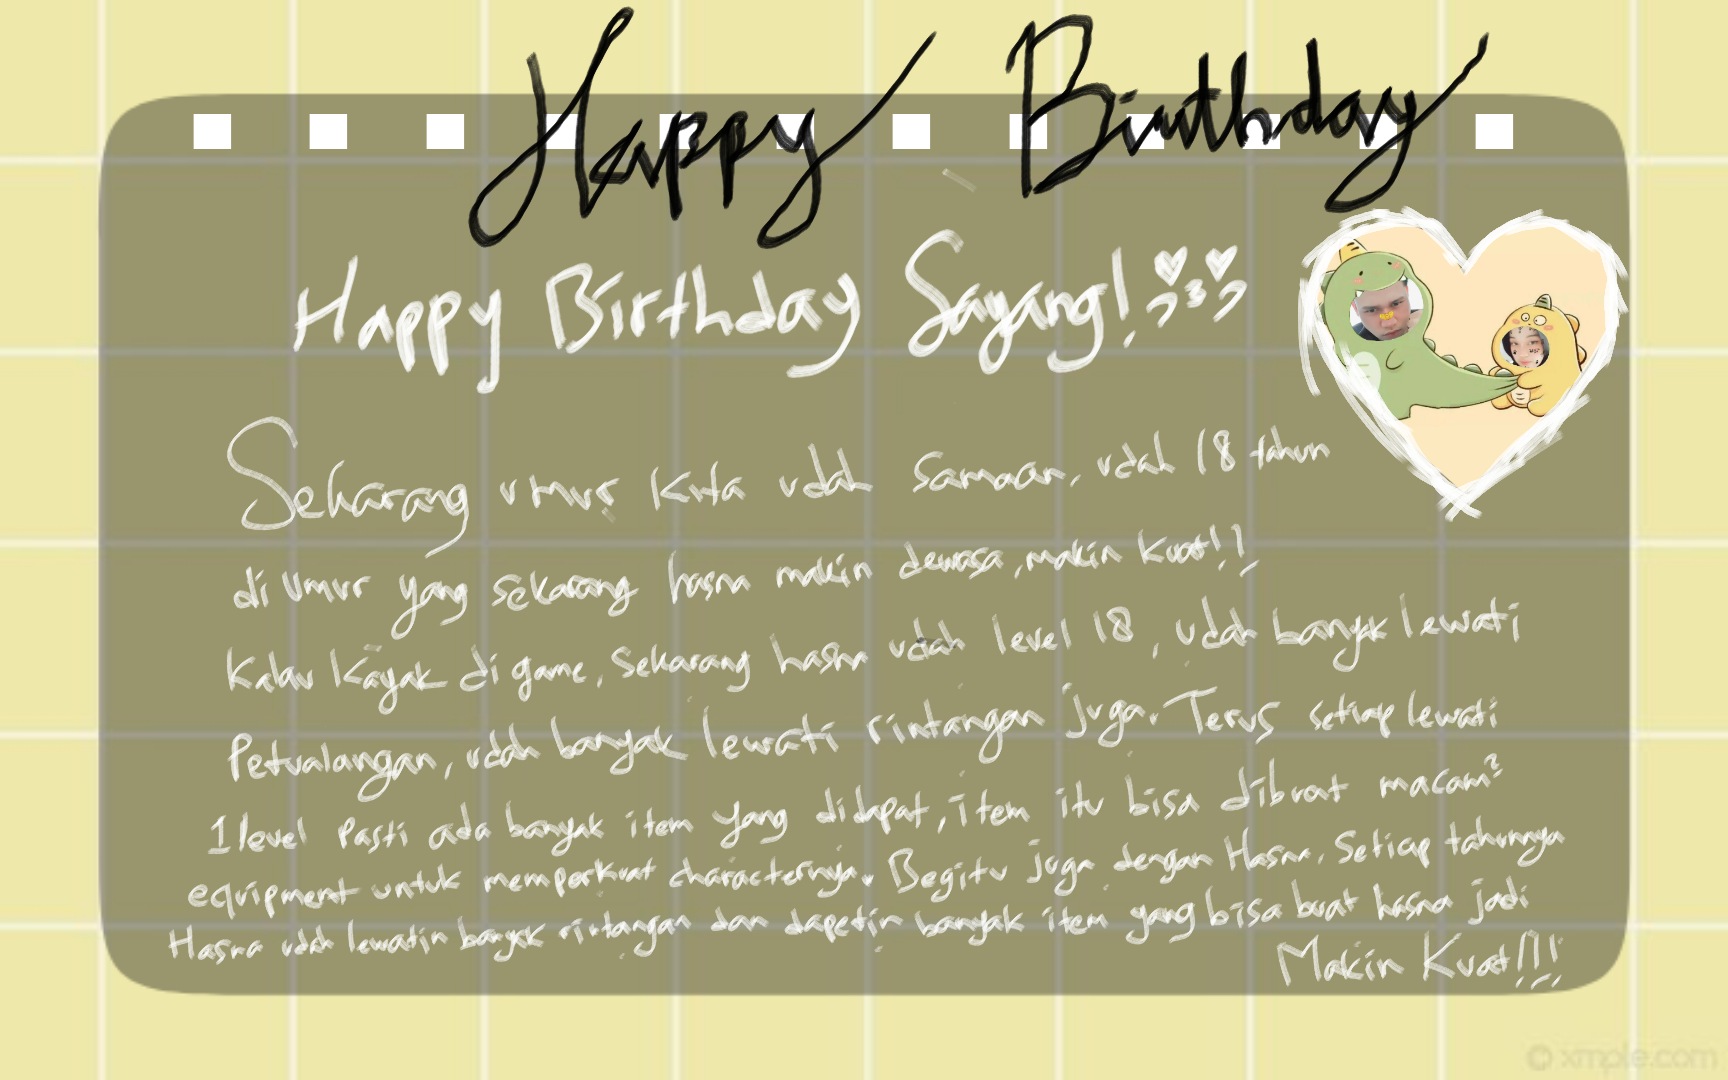 Happy Birthday
Happy Birthday Sayang!
Sekarang umur kita udah samaan, udah 18 tahun
di umur yang sekarang hasna makin dewasa, makin kuat!!
Kalau kayak di game, sekarang hasna udah level 18, udah banyak lewati
Petualangan, udah banyak lewati rintangan juga. Terus setiap lewati
1 level pasti ada banyak item yang didapat, item itu bisa dibuat macam²
equipment untuk memperkuat characternya. Begitu juga dengan Hasna. Setiap tahunnya
Hasna udah lewatin banyak rintangan dan dapetin banyak item yang bisa buat hasna jadi
Makin Kuat!!!
© xmple.com